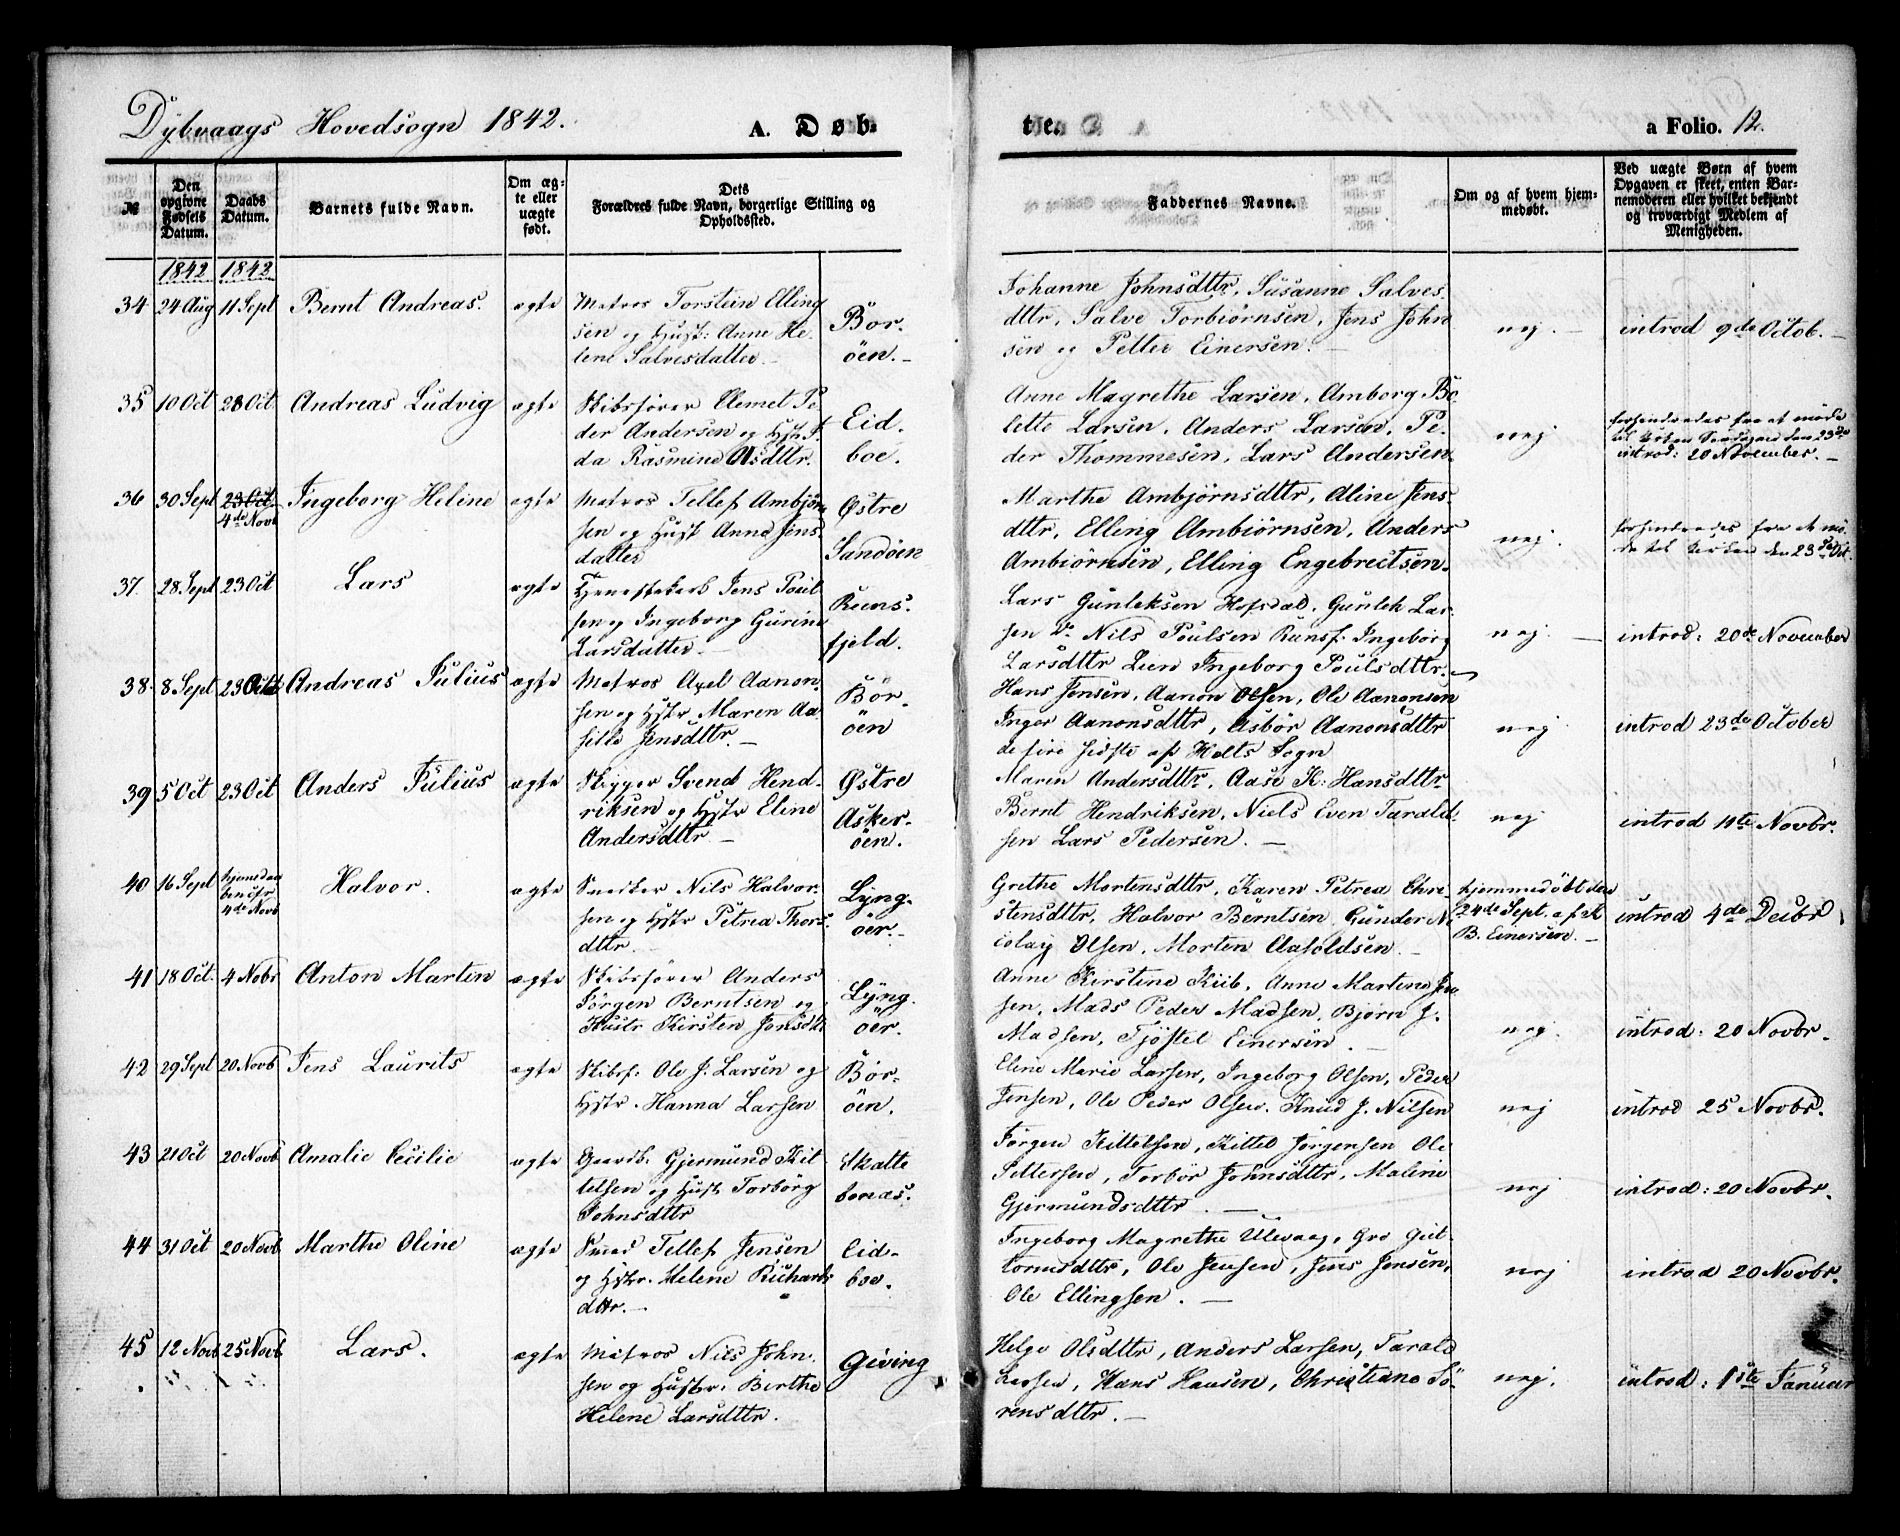 Dybvaags Hovedsogn 1842.
A. Døb-
te.
a Folio. 12.
№
Den opgivne Fødsels Datum.
Daabs Datum.
Barnets fulde Navn.
Om ægte eller uægte født.
Dets Forældres fulde Navn, borgerlige Stilling og Opholdssted.
Faddernes Navne.
Om og af hvem hjemmedøbt.
Ved uægte Børn af hvem Opgaven er skeet, enten Barnemoderen eller hvilket bekjendt og troværdigt Medlem af Menigheden.
1842 1842
34 24 Aug 11 Sept Bernt Andreas. ægte
Matros Torstein Elling
sen og Hust: Anne He-
lene Salvesdatter.
Bor-
öen.
Johanne Johnsdttr, Susanne Salves
dttr, Salve Torbiörnsen, Jens John
sen og Petter Einersen.
nej.
introd 9de Octob.
35 10 Oct 23 Oct Andreas Ludvig ægte
Skibsfører Clemet Pe
der Andersen og Hstr I-
da Rasmine Olsdttr.
Eid-
boe.
Anne Magrethe Larsen, Amborg Bo
lette Larsen, Anders Larsen, Pe-
der Thommesen, Lars Andersen
nej
forhindredes fra at möde
til Kirken Söndagen den 23de
introd: 20 November.
36 30 Sept 23 Oct 4de Novb Ingeborg Heline ægte
Matros Tellef Ambjörn
sen og Hust Anne Jens
datter
Østre
Sandöen
Marthe Ambjörnsdttr, Aline Jens-
dttr, Elling Ambiörnsen, Anders
Ambiörnsen, Elling Engebrectsen
nej.
forhindredes fra at mö-
de til Kirken den 23de Oct.
37. 28 Sept 23 Oct Lars ægte
Jens Poul
sen og Ingeborg Gurine
Larsdatter.
Reens-
fjeld.
Lars Gunleksen Hofsdal, Gunlek Lar-
sen Do Nils Poulsen Runsf. Ingeborg
Larsdttr Lien Ingeborg Poulsdttr
nej.
introd: 20de November
38. 8 Sept 23 Octb Andreas Julius ægte
Matros Axel Aanon-
sen og Hstr Maren Aa-
sille Jensdttr.
Bör-
öen
Hans Jensen, Aanon Olsen, Ole Aanonsen
Inger Aanonsdttr, Asbör Aanonsdttr
de fire sidste af Holts Sogn
nej
introd 23de October
39 5 Oct 23 Oct Anders Julius ægte
Skipper Svend Hend-
riksen og Hstr Eline
Andersdttr.
Østre
Asker-
öen.
Maren Andersdttr, Aase K. Hansdttr
Bernt Hendriksen, Niels Even Tarald-
sen Lars Pedersen.
nej
introd 11te Novbr.
40 16 Sept hjemedaa
ben
4de Novb Halvor. ægte
Snedker Nils Halvor-
sen og Hstr Petrea Thors-
dttr.
Lyng-
öer.
Grethe Mortensdttr, Karen Petrea Chri-
stensdttr, Halvor Berntsen Gunder Ni-
colay Olsen, Morten Aasoldsen.
hjemmedöbt den
24de Sept. af
B. Einersen.
introd 4de Decbr
41 18 Oct. 4 Nobr Anton Martin ægte
Skibsfører Anders
Jörgen Berntsen og
Hustr Kirsten Jonsdtt
Lyng.
öer.
Anne Kirstine Kiib, Anne Martine
sen, Mads Peder Madsen, Bjørn J.
Madsen, Tjöstel Einersen.
nej.
introd: 20 Novbr.
42 29 Sept 20 Novb Jens Laurits ægte
Skibsf. Ole J. Larsen og
Hstr. Hanna Larsen
Bör-
öen.
Eline Marie Larsen, Ingeborg Olsen, Peder
Jensen, Ole Peder Olsen, Knud J. Nilsen
nej
introd 25 Novbr.
43 21 Oct 20 Novb Amalie Cecilie ægte
Gaardb. Gjermund Kit
telsen og Hust Torborg
Johnsdttr
Skatte
bonas.
Jörgen Kittelsen, Kittel Jörgensen Ole
Pettersen, Torbör Johnsdttr, Maline
Gjermundsdttr.
nej
introd: 20 Novbr.
44 31 Oct 20 Novb Marthe Oline ægte
Smed Tellef Jensen
og Hstr. Helene Richards
dttr.
Eid-
boe.
Ingeborg Magrethe Ulevaag, Gro Gut-
tormsdttr, Ole Jensen, Jens Jensen,
Ole Ellingsen.
nej
introd 20 Novbr.
45 12 Novb 25 Novb Lars. ægte
Matros Nils John-
sen og Hustr. Berthe
Helene Larsdttr.
Giving
Helge Olsdttr, Anders Larsen, Tarald
Larsen, Hans Hansen, Christiane Sö-
rensdttr.
nej.
introd: 1ste Januar